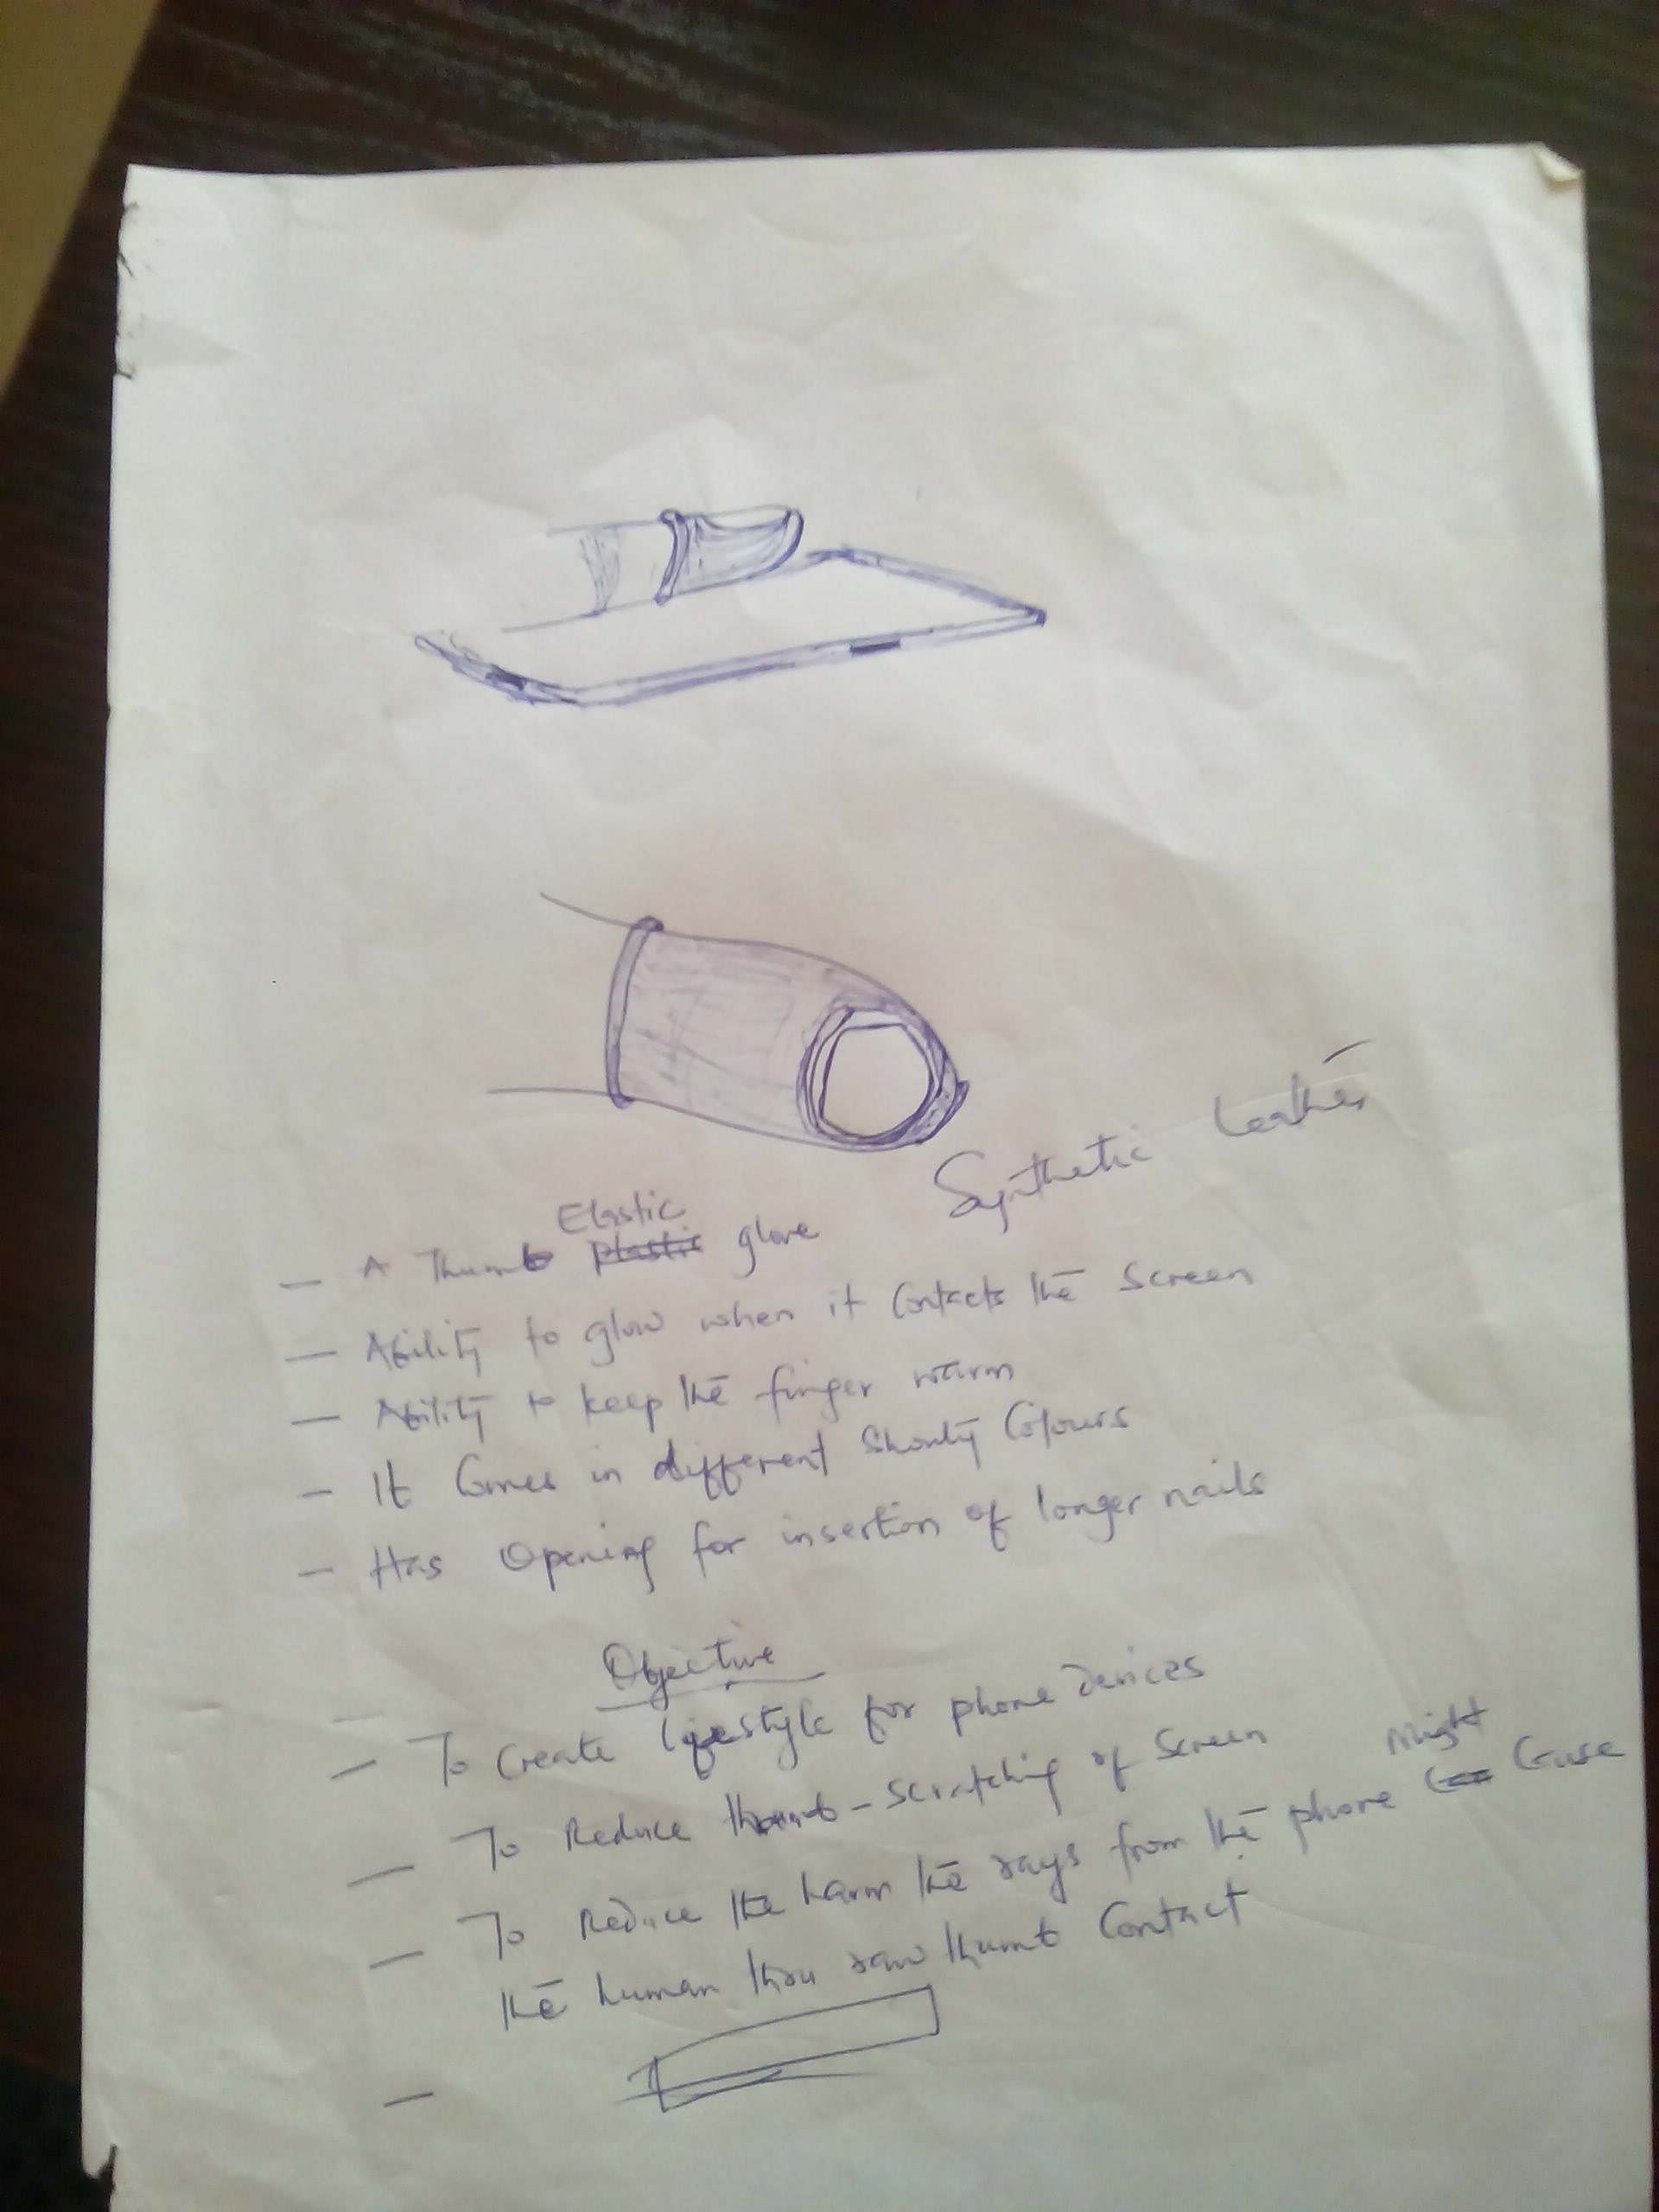 Synthetic Leather
Elastic
— A Thumb plastic glove
— Ability to glow when it contacts the screen
— Ability to keep the finger warm
— It Comes in different Colours
— Has Opening for insertion of longer nails
Objective
— To create lifestyle for phone devices
— To Reduce thumb-scratching of screen
might
— To Reduce the harm the rays from the phone Cause
the human thru raw thumb Contact
—